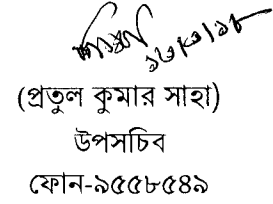 ১৮/৩/১৮
(প্রতুল কুমার সাহা)
উপসচিব
ফোন-৯৫৫৮৫৪৯